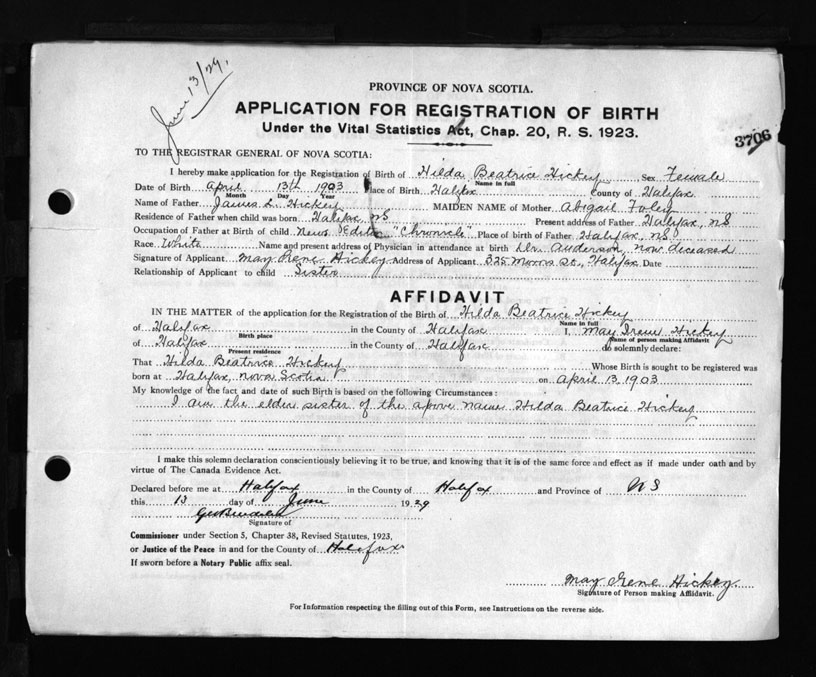 June 13/29.
PROVINCE OF NOVA SCOTIA.
APPLICATION FOR REGISTRATION OF BIRTH
Under the Vital Statistics Act, Chap. 20, R. S. 1923.
3706
TO THE REGISTRAR GENERAL OF NOVA SCOTIA:
I hereby make application for the Registration of Birth of Hilda Beatrice Hickey Sex Female
Name in full
Date of Birth April 13th 1903 Place of Birth Halifax County of Halifax
Month Day Year
Name of Father James L. Hickey MAIDEN NAME of Mother Abigail Foley
Residence of Father when child was born Halifax, NS Present address of Father Halifax, NS
Occupation of Father at Birth of child News Editor "Chronicle" Place of birth of Father Halifax, NS
Race White Name and present address of Physician in attendance at birth Dr. Anderson, now deceased
Signature of Applicant May Irene Hickey Address of Applicant 325 Morris St., Halifax Date
Relationship of Applicant to child Sister
AFFIDAVIT
IN THE MATTER of the application for the Registration of the Birth of Hilda Beatrice Hickey
Name in full
of Halifax in the County of Halifax I, May Irene Hickey
Birth place Name of person making Affidavit
of Halifax in the County of Halifax do solemnly declare:
Present residence
That Hilda Beatrice Hickey Whose Birth is sought to be registered was
born at Halifax, Nova Scotia on April 13, 1903
My knowledge of the fact and date of such Birth is based on the following Circumstances:
I am the elder sister of the above name Hilda Beatrice Hickey
I make this solemn declaration conscientiously believing it to be true, and knowing that it is of the same force and effect as if made under oath and by
virtue of The Canada Evidence Act.
Declared before me at Halifax in the County of Halifax and Province of NS
this 13 day of June 1929
Signature of
Commissioner under Section 5, Chapter 38, Revised Statutes, 1923,
or Justice of the Peace in and for the County of Halifax
If sworn before a Notary Public affix seal.
May Irene Hickey
Signature of Person making Affidavit.
For Information respecting the filling out of this Form, see Instructions on the reverse side.